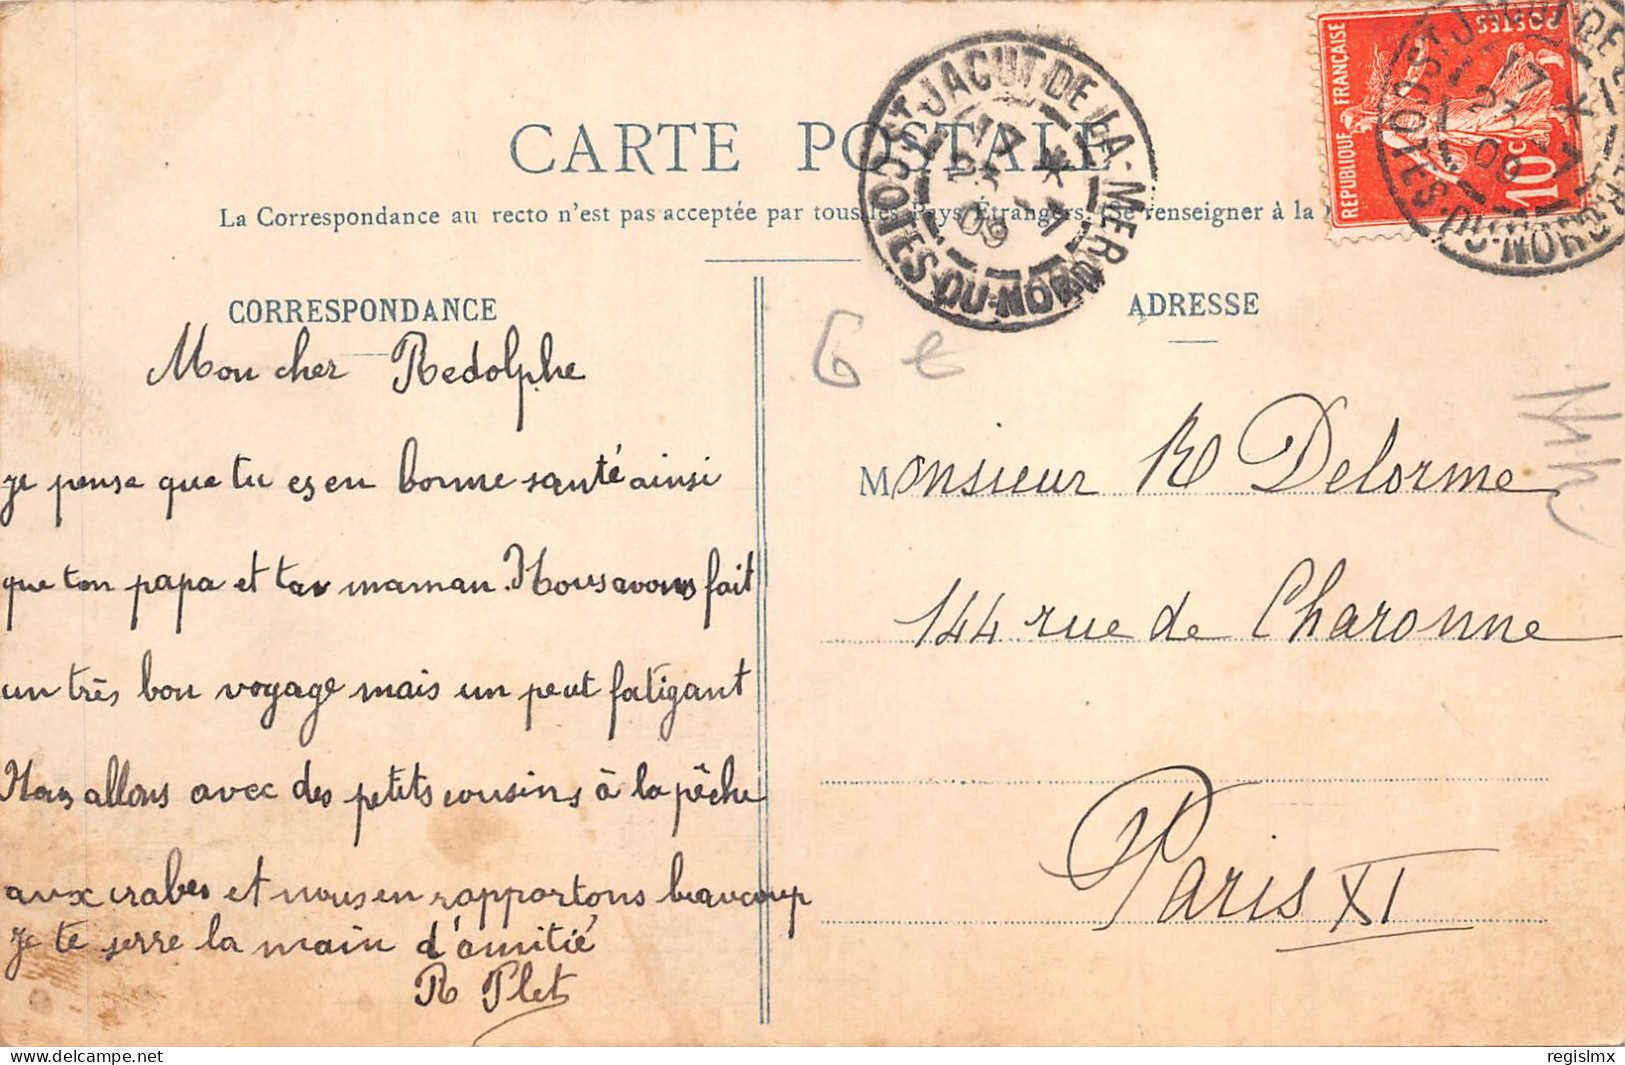 CARTE POSTALE
La Correspondance au recto n'est pas acceptée par tous les Pays Étrangers. (Se renseigner à la
ST JACUT-DE-LA-MER
COTES-DU-NORD
17
23
09
REPUBLIQUE FRANÇAISE
POSTES
10c
CORRESPONDANCE
Mon cher Redolphe
je pense que tu es en bonne santé ainsi
que ton papa et ta maman. Nous avons fait
un très bon voyage mais un peut fatigant
Nous allons avec des petits cousins à la pêche
aux crabes et nous en rapportons beaucoup
Je te serre la main d'amitié
R Plet
6 €
ADRESSE
Monsieur R Delorme
144 rue de Charonne
Paris XI
delcampe.net
regislmx